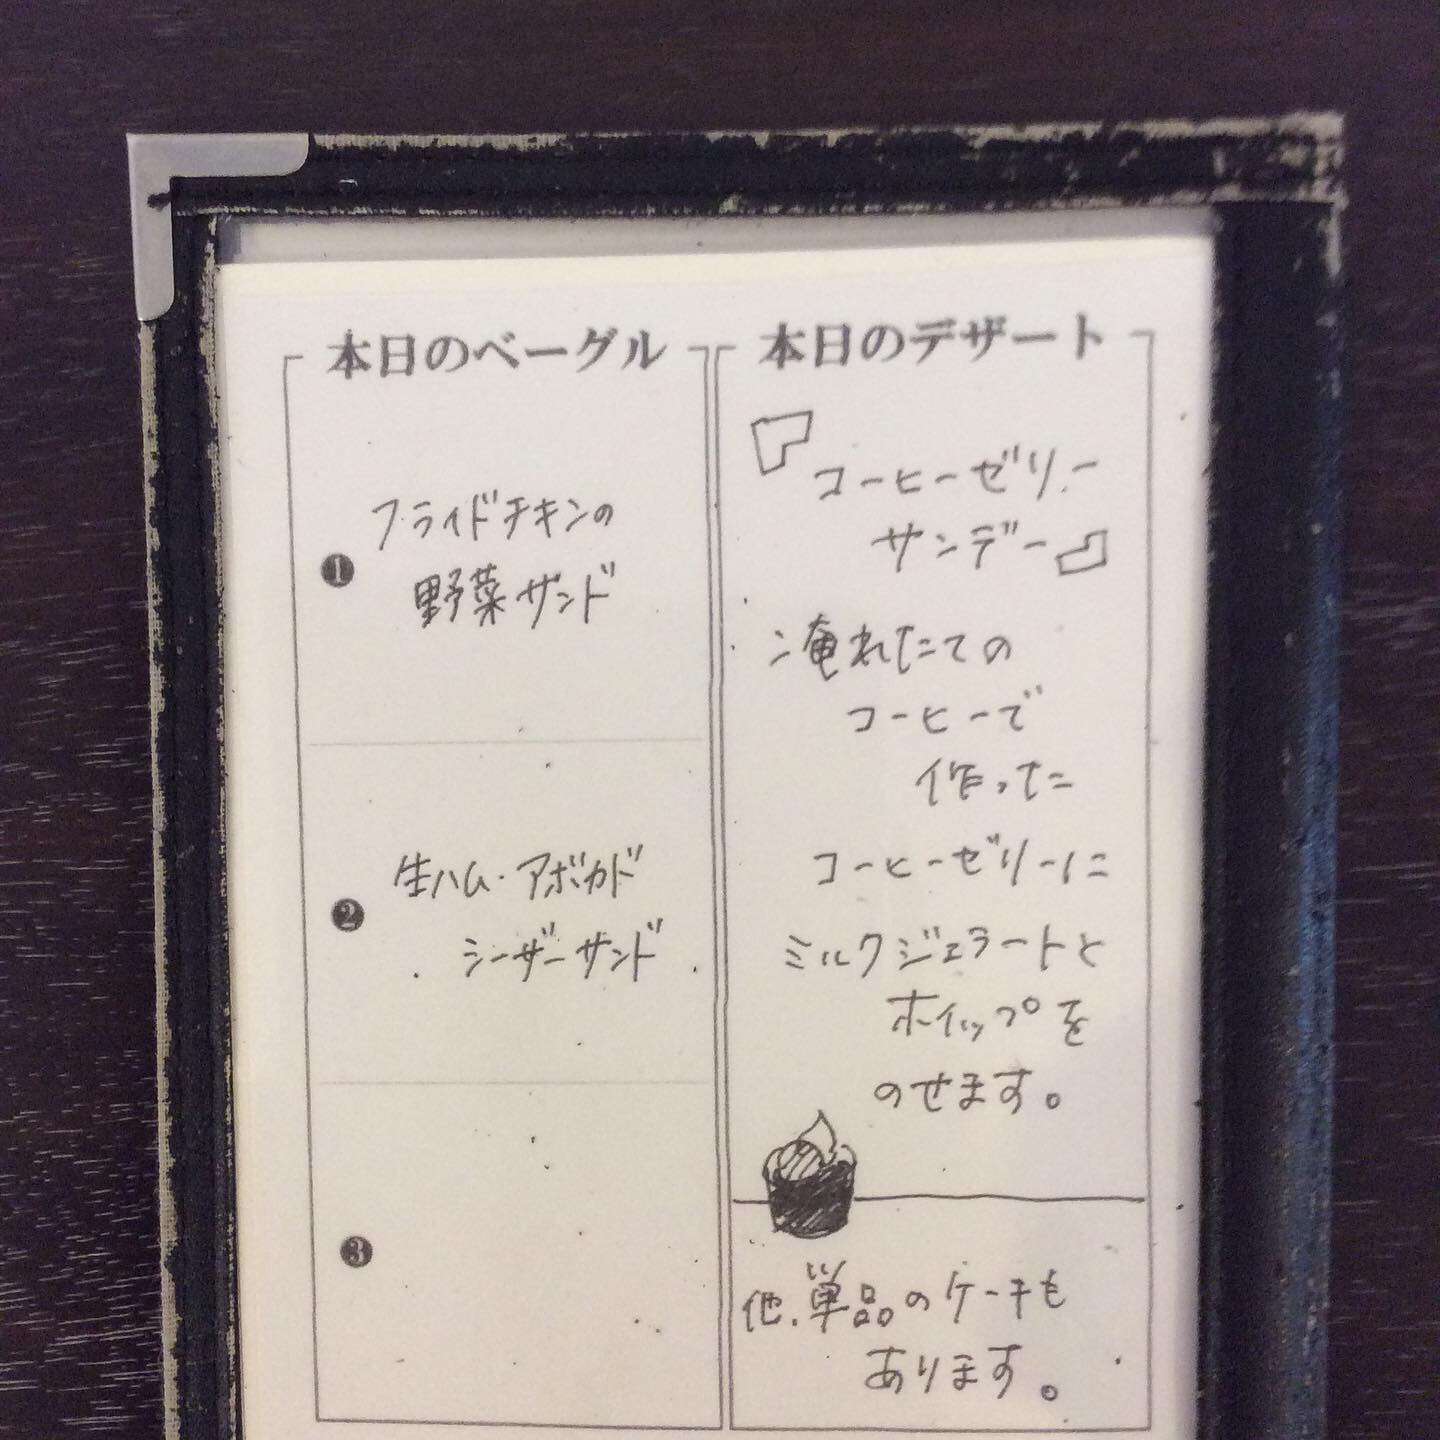 本日のベーグル
❶
フライドチキンの
野菜サンド
❷
生ハム・アボカド
シーザーサンド
❸
本日のデザート
『コーヒーゼリー
サンデー』
:淹れたての
コーヒーで
作った
コーヒーゼリーに
ミルクジェラートと
ホイップを
のせます。
他、単品のケーキも
あります。